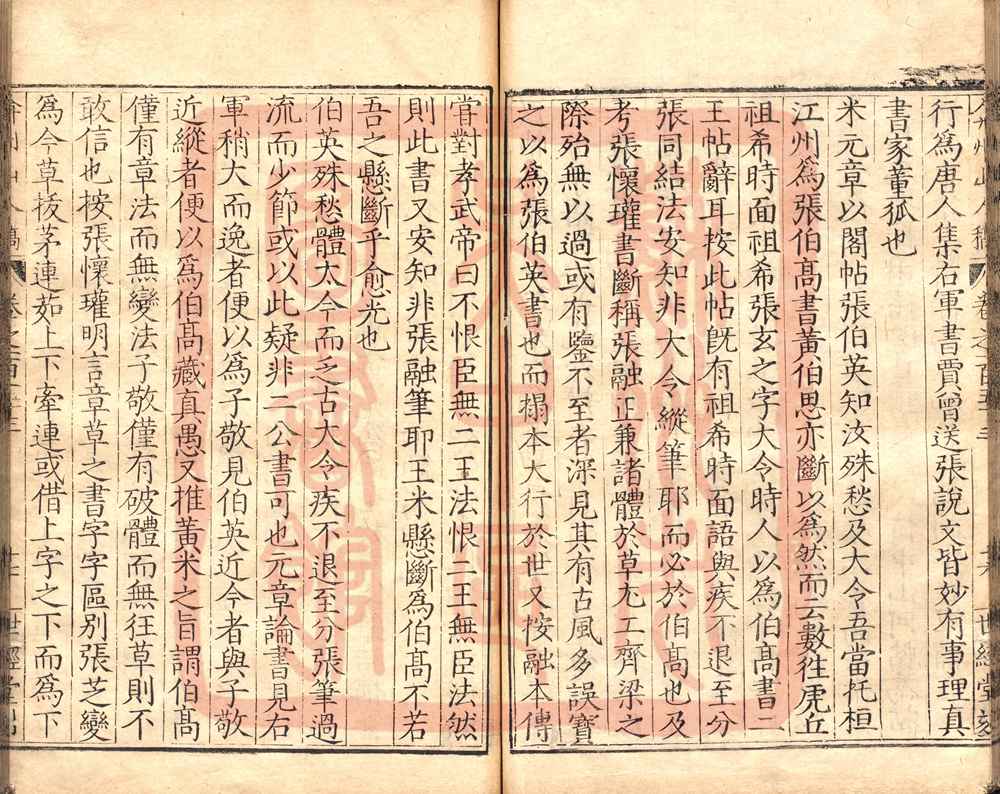 行爲唐人集右軍書賈曾送張說文皆妙有事理真
書家董狐也
米元章以閣帖張伯英知汝殊愁及大令吾當托桓
江州爲張伯高書黄伯思亦斷以爲然而云數往虎丘
祖希時面祖希張玄之字大令時人以爲伯高書二
王帖辭耳按此帖既有祖希時面語與疾不退至分
張同結法安知非大令縱筆耶而必於伯高也及
考張懷瓘書斷稱張融正兼諸體於草尤工齊梁之
際殆無以過或有鑒不至者深見其有古風多誤寶
之以爲張伯英書也而搨本大行於世又按融本傳
嘗對孝武帝曰不恨臣無二王法恨二王無臣法然
則此書又安知非張融筆耶王米懸斷爲伯高不若
吾之懸斷乎愈光也
伯英殊愁體太今而乏古大令疾不退至分張筆過
流而少節或以此疑非二公書可也元章論書見右
軍稍大而逸者便以爲子敬見伯英近今者與子敬
近縱者便以爲伯高藏真愚又推黄米之旨謂伯高
僅有章法而無變法子敬僅有破體而無狂草則不
敢信也按張懷瓘明言章草之書字字區别張芝變
爲今草拔茅連茹上下牽連或借上字之下而爲下
弇州山人稿 卷之一百三十三
世經堂刻